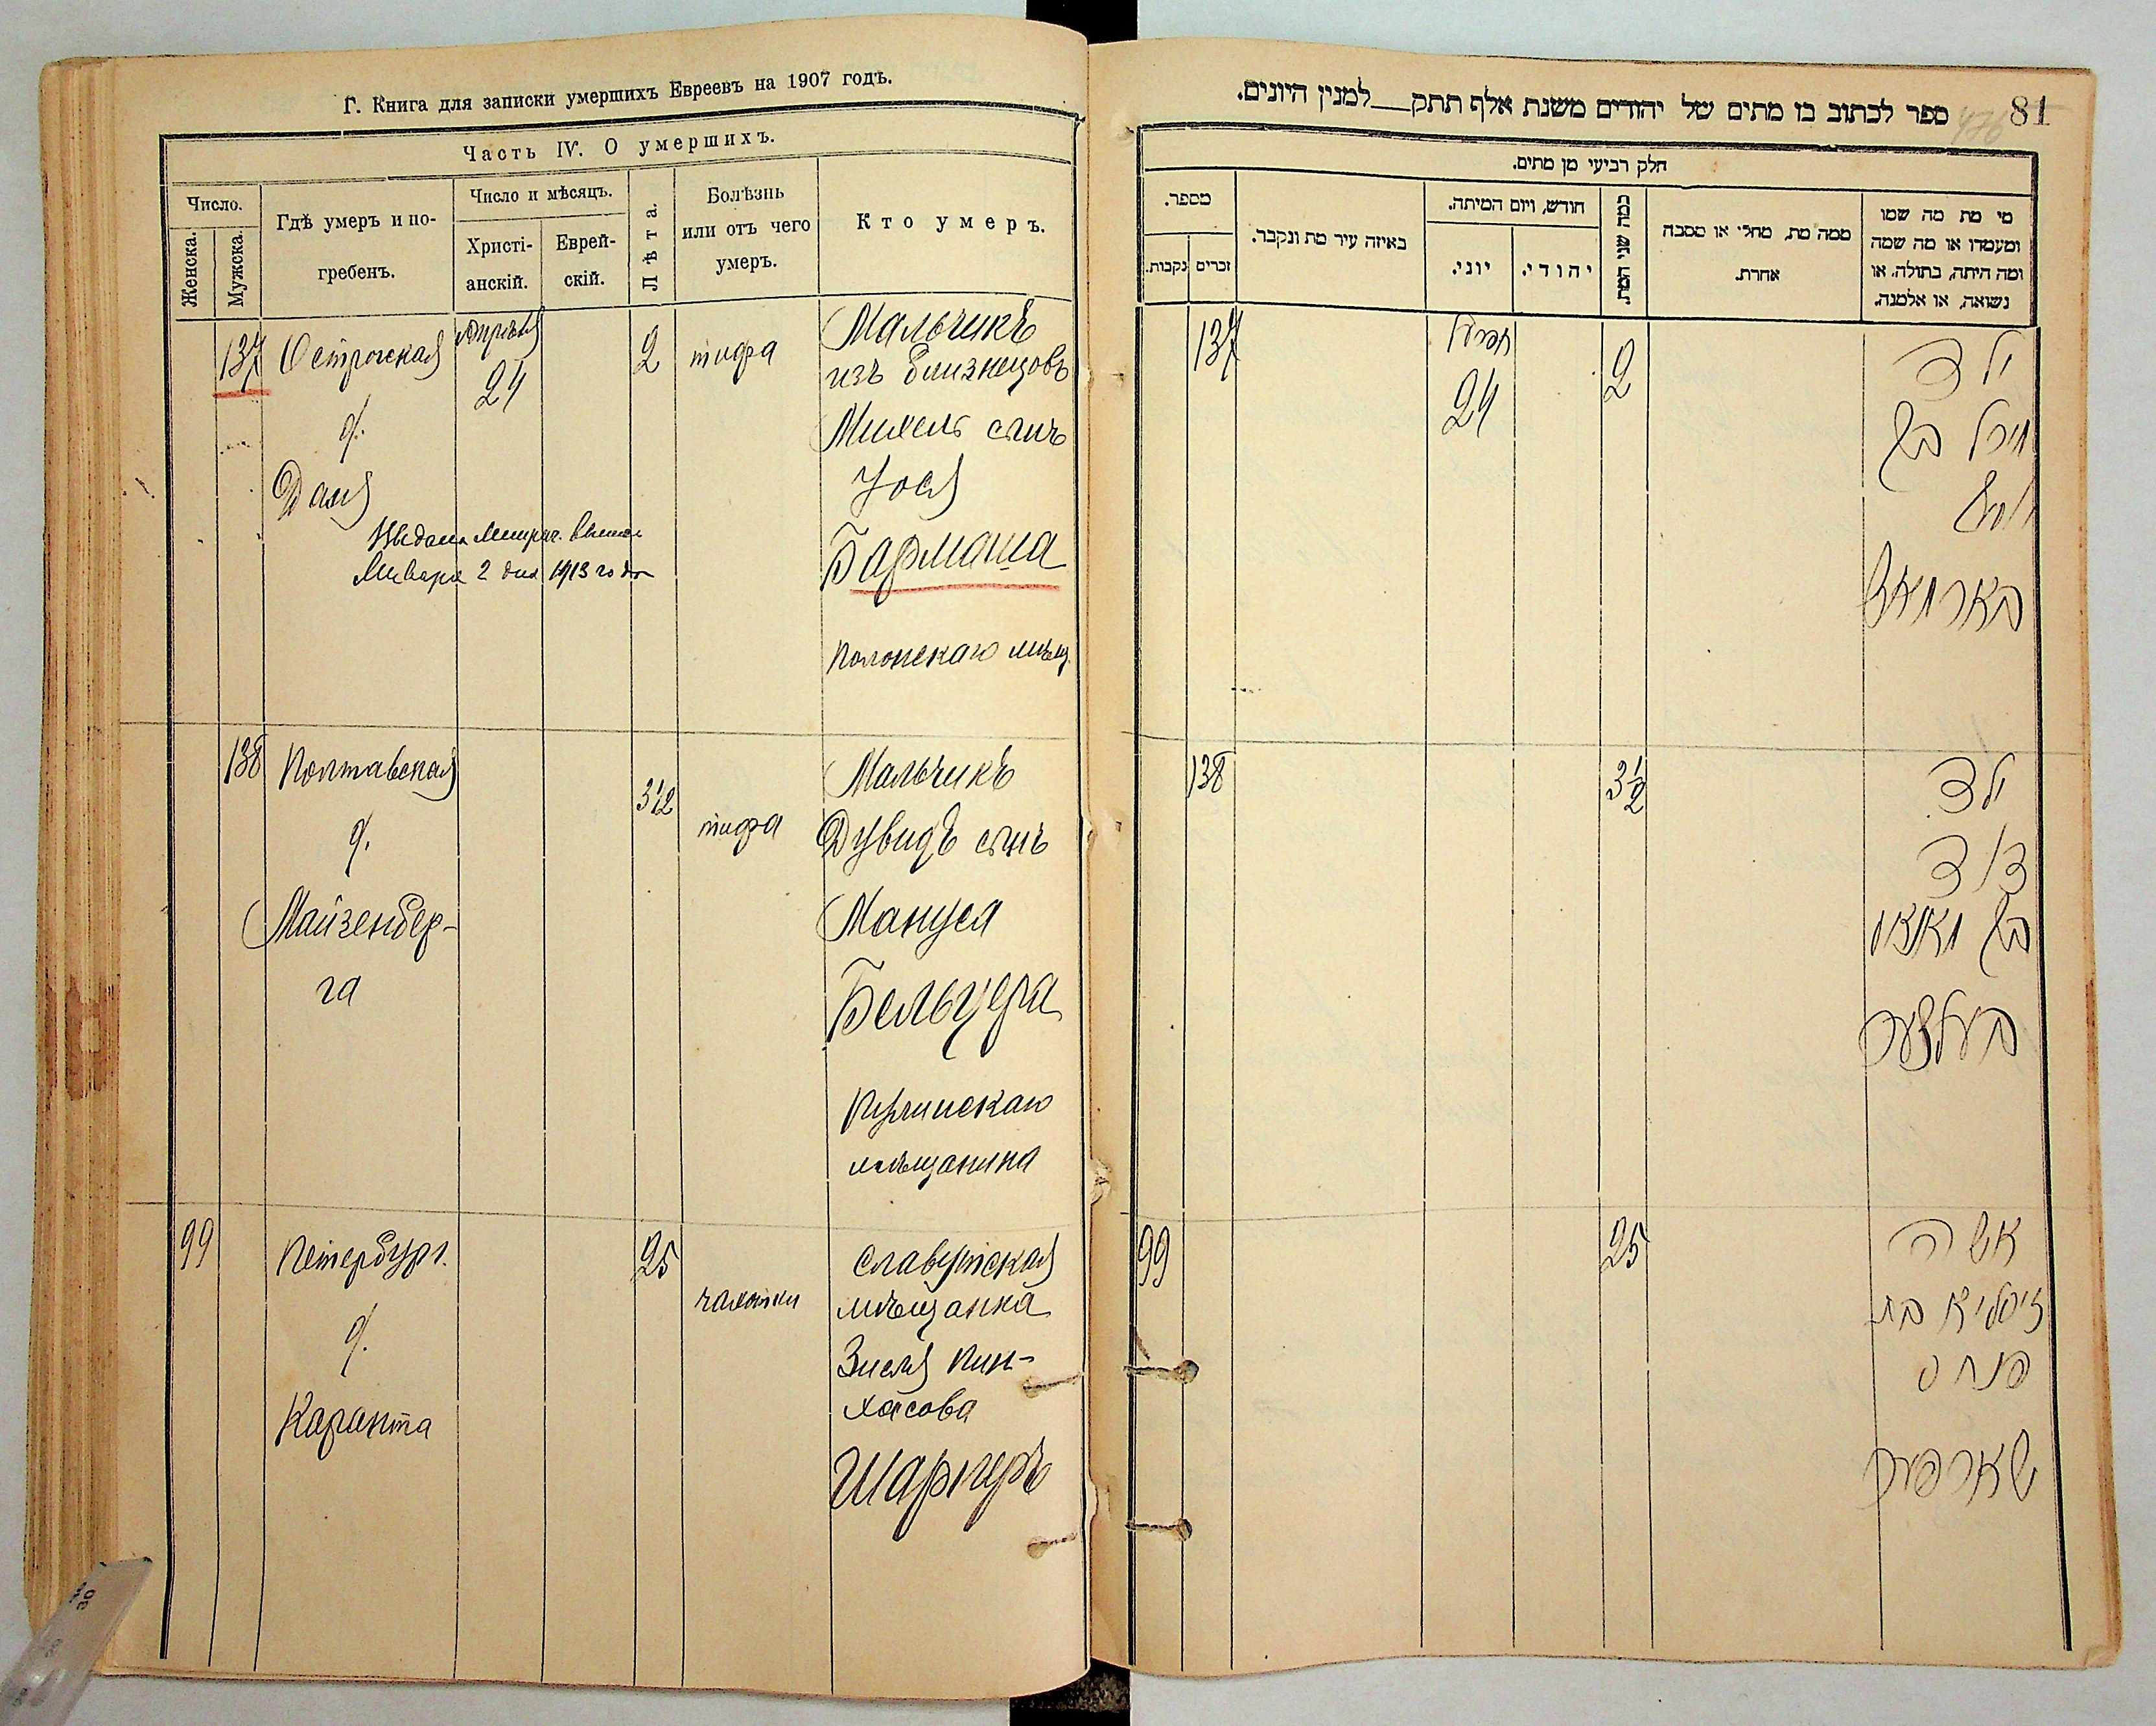 Г. Книга для записки умершихъ Евреевъ на 1907 годъ.
Часть IV. О умершихъ.
Число.
Женска.
Мужска.
Гдѣ умеръ и по-
гребенъ.
Число и мѣсяцъ.
Христі-
анскій.
Еврей-
скій.
Лѣта.
Болѣзнь
или отъ чего
умеръ.
Кто умеръ.
137
Острожская
д.
Даля
Апрѣля
24
2
тифа
Мальчикъ
изъ близнецовъ
Михель сынъ
Іося
Бармаша
Полонскаго мѣщ.
Выдана Метрич.
Января 2 дня 1913 года
138
Полтавская
д.
Майзенбер-
га
3 1/2
тифа
Мальчикъ
Дувидъ сынъ
Мануса
Бельцера
мѣщанина
99
Петербург.
д.
Каранта
25
чахотки
Славутская
мѣщанка
Зисля Пин-
хасова
ספר לכתוב בו מתים של יהודים משנת אלף תתק__למנין היונים.
81
476
חלק רביעי מן מתים.
מספר.
נקבות.
זכרים
באיזה עיר מת ונקבר.
חודש, ויום המיתה.
יוני.
יהודי.
כמה שני המת.
ממה מת, מחלי או מסבה
אחרת.
מי מת מה שמו
ומעמדו או מה שמה
ומה היתה, בתולה, או
נשואה, או אלמנה.
137
אפריל
24
2
ילד
מיכל בן
יוסף
בארמאש
138
3 1/2
ילד
דוד
בן מאנוס
בעלצער
99
25
אשה
זיסליא בת
פנחס